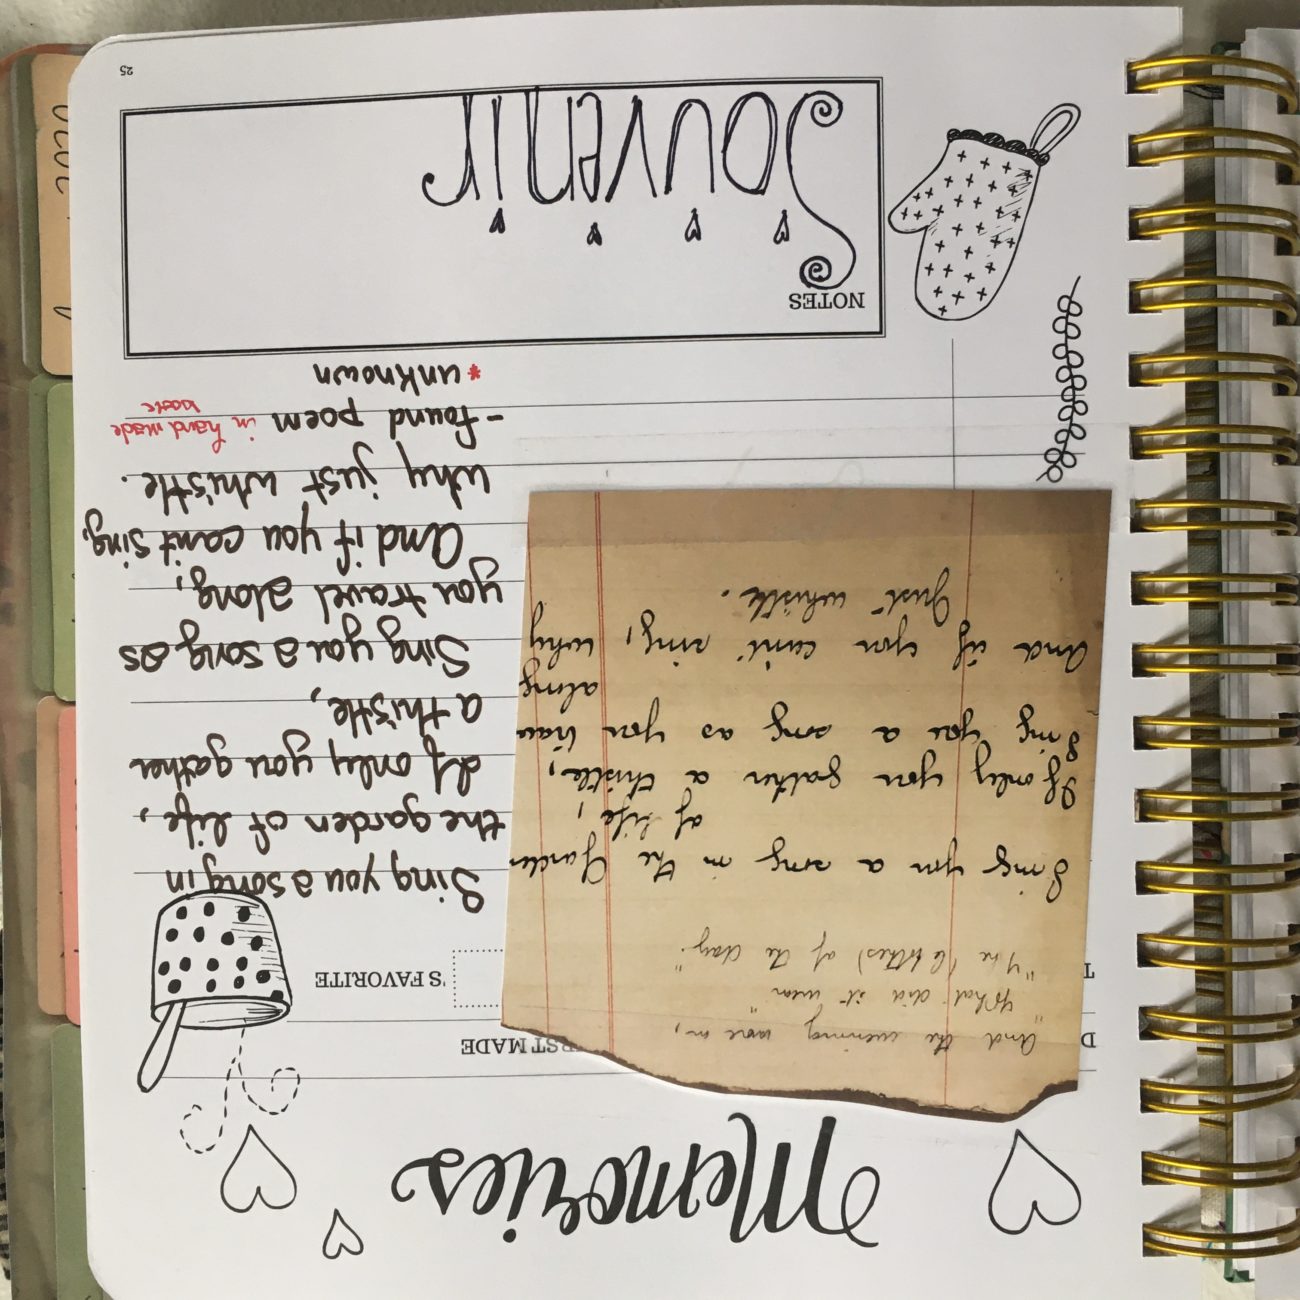 Memories
RST MADE
'S FAVORITE
And the evening wore on,
"What did it wear"
"The (Clothes) of the day."
Sing you a song in the Garden
of life,
If only you gather a thistle,
Sing you a song as you trav
along
And if you can't sing, why
Just whistle.
Sing you a song in
the garden of life,
If only you gather
a thistle,
Sing you a song as
you travel along,
And if you can't sing,
why just whistle.
-found poem in hand made
book
*unknown
NOTES
Souvenir
25